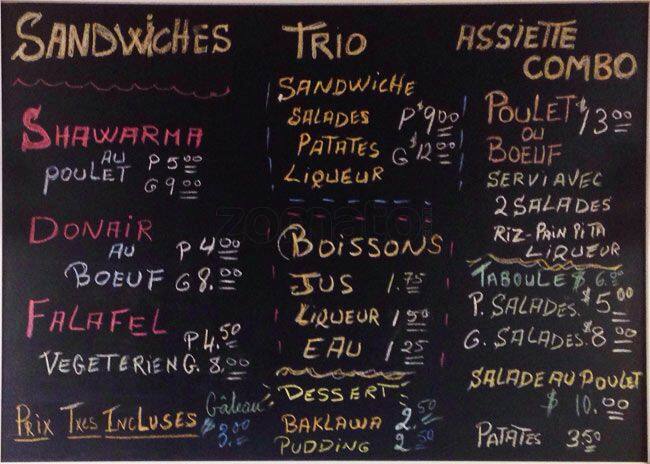 SANDWICHES
SHAWARMA
AU POULET
P 5.00
G 9.00
DONAIR
AU BOEUF
P 4.00
G 8.00
FALAFEL
VEGETERIEN
P 4.50
G. 8.00
PRIX TXES INCLUSES
Gâteau
$ 3.00
TRIO
SANDWICHE
SALADES
PATATES
LIQUEUR
P $9.00
G $12.00
BOISSONS
JUS 1.75
LIQUEUR 1.50
EAU 1.25
DESSERT
BAKLAWA 2.50
PUDDING 2.50
ASSIETTE
COMBO
POULET $13.00
OU
BOEUF
SERVI AVEC
2 SALADES
RIZ-PAIN PITA
LIQUEUR
TABOULE $ 6.00
P. SALADES. $5.00
G. SALADES. $8.00
SALADE AU POULET
$ 10.00
PATATES 3.50
zomato